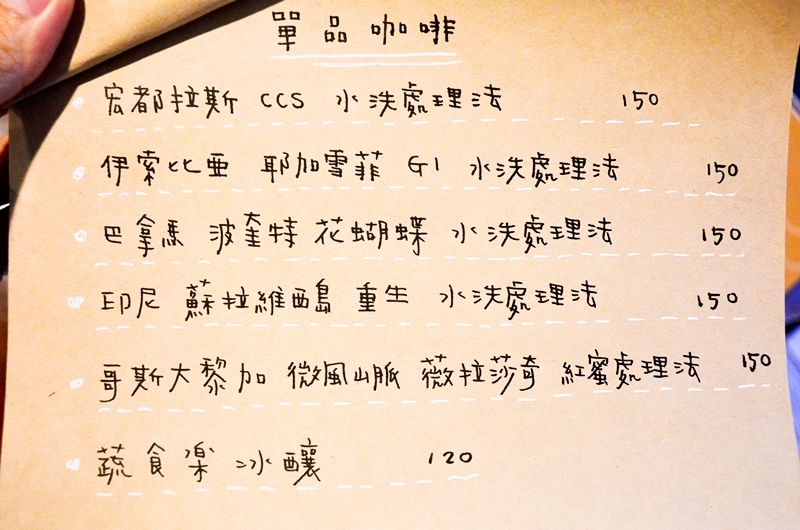 單品咖啡
宏都拉斯 CCS 水洗處理法 150
伊索比亞 耶加雪菲 G1 水洗處理法 150
巴拿馬 波奎特 花蝴蝶 水洗處理法 150
印尼 蘇拉維西島 重生 水洗處理法 150
哥斯大黎加 微風山脈 薇拉莎奇 紅蜜處理法 150
蔬食楽 冰釀 120